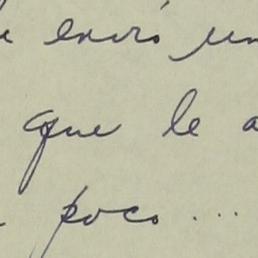 envió un
que le a
poco ...